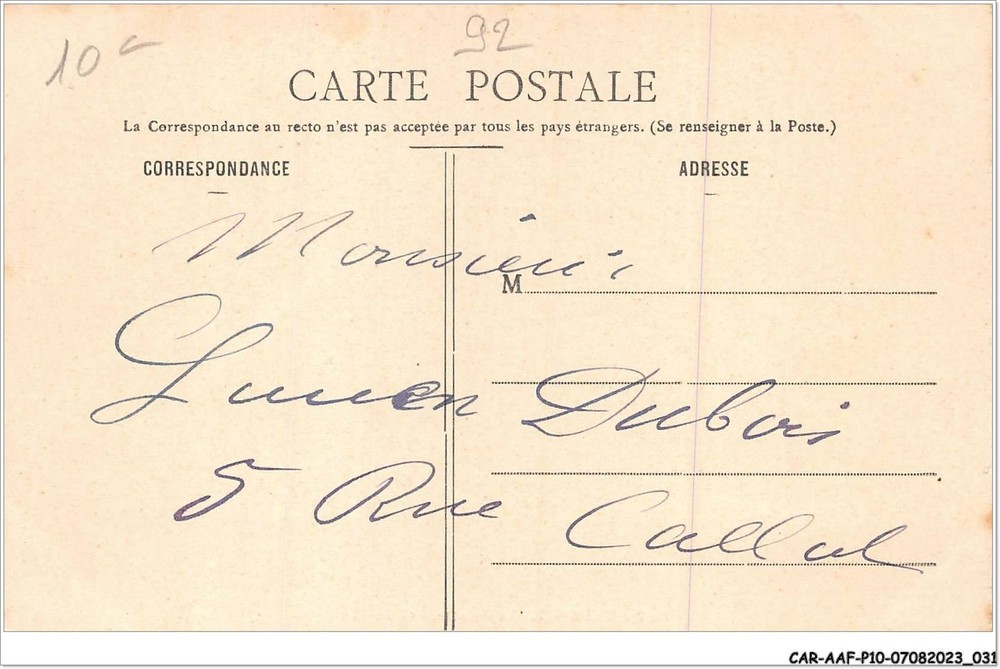 10 c
92
CARTE POSTALE
La Correspondance au recto n'est pas acceptée par tous les pays étrangers. (Se renseigner à la Poste.)
CORRESPONDANCE
ADRESSE
Monsieur
M
Lucien Dubois
5 Rue Callot
CAR-AAF-P10-07082023_031